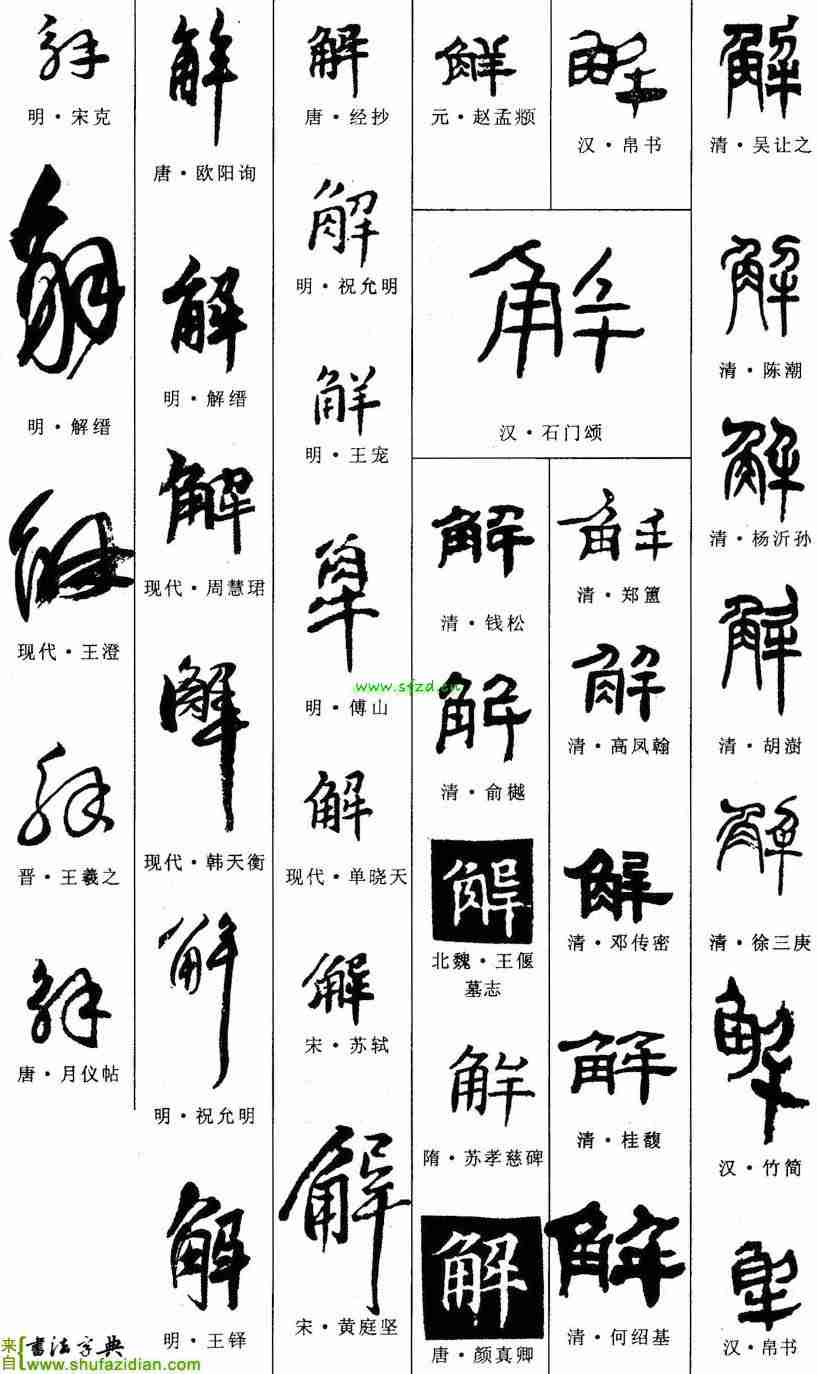 解
明·宋克
解
明·解缙
解
现代·王澄
解
晋·王羲之
解
唐·月仪帖
解
唐·欧阳询
解
明·解缙
解
现代·周慧珺
解
现代·韩天衡
解
明·祝允明
解
明·王铎
解
唐·经抄
解
明·祝允明
解
明·王宠
解
明·傅山
解
现代·单晓天
解
宋·苏轼
解
宋·黄庭坚
解
元·赵孟頫
解
汉·帛书
解
汉·石门颂
解
清·钱松
解
清·俞樾
解
北魏·王偃
墓志
解
隋·苏孝慈碑
解
唐·颜真卿
解
清·郑簠
解
清·高凤翰
解
清·邓传密
解
清·桂馥
解
清·何绍基
解
清·吴让之
解
清·陈潮
解
清·杨沂孙
解
清·胡澍
解
清·徐三庚
解
汉·竹简
解
汉·帛书
www.sfzd.cn
来自
书法字典
www.shufazidian.com